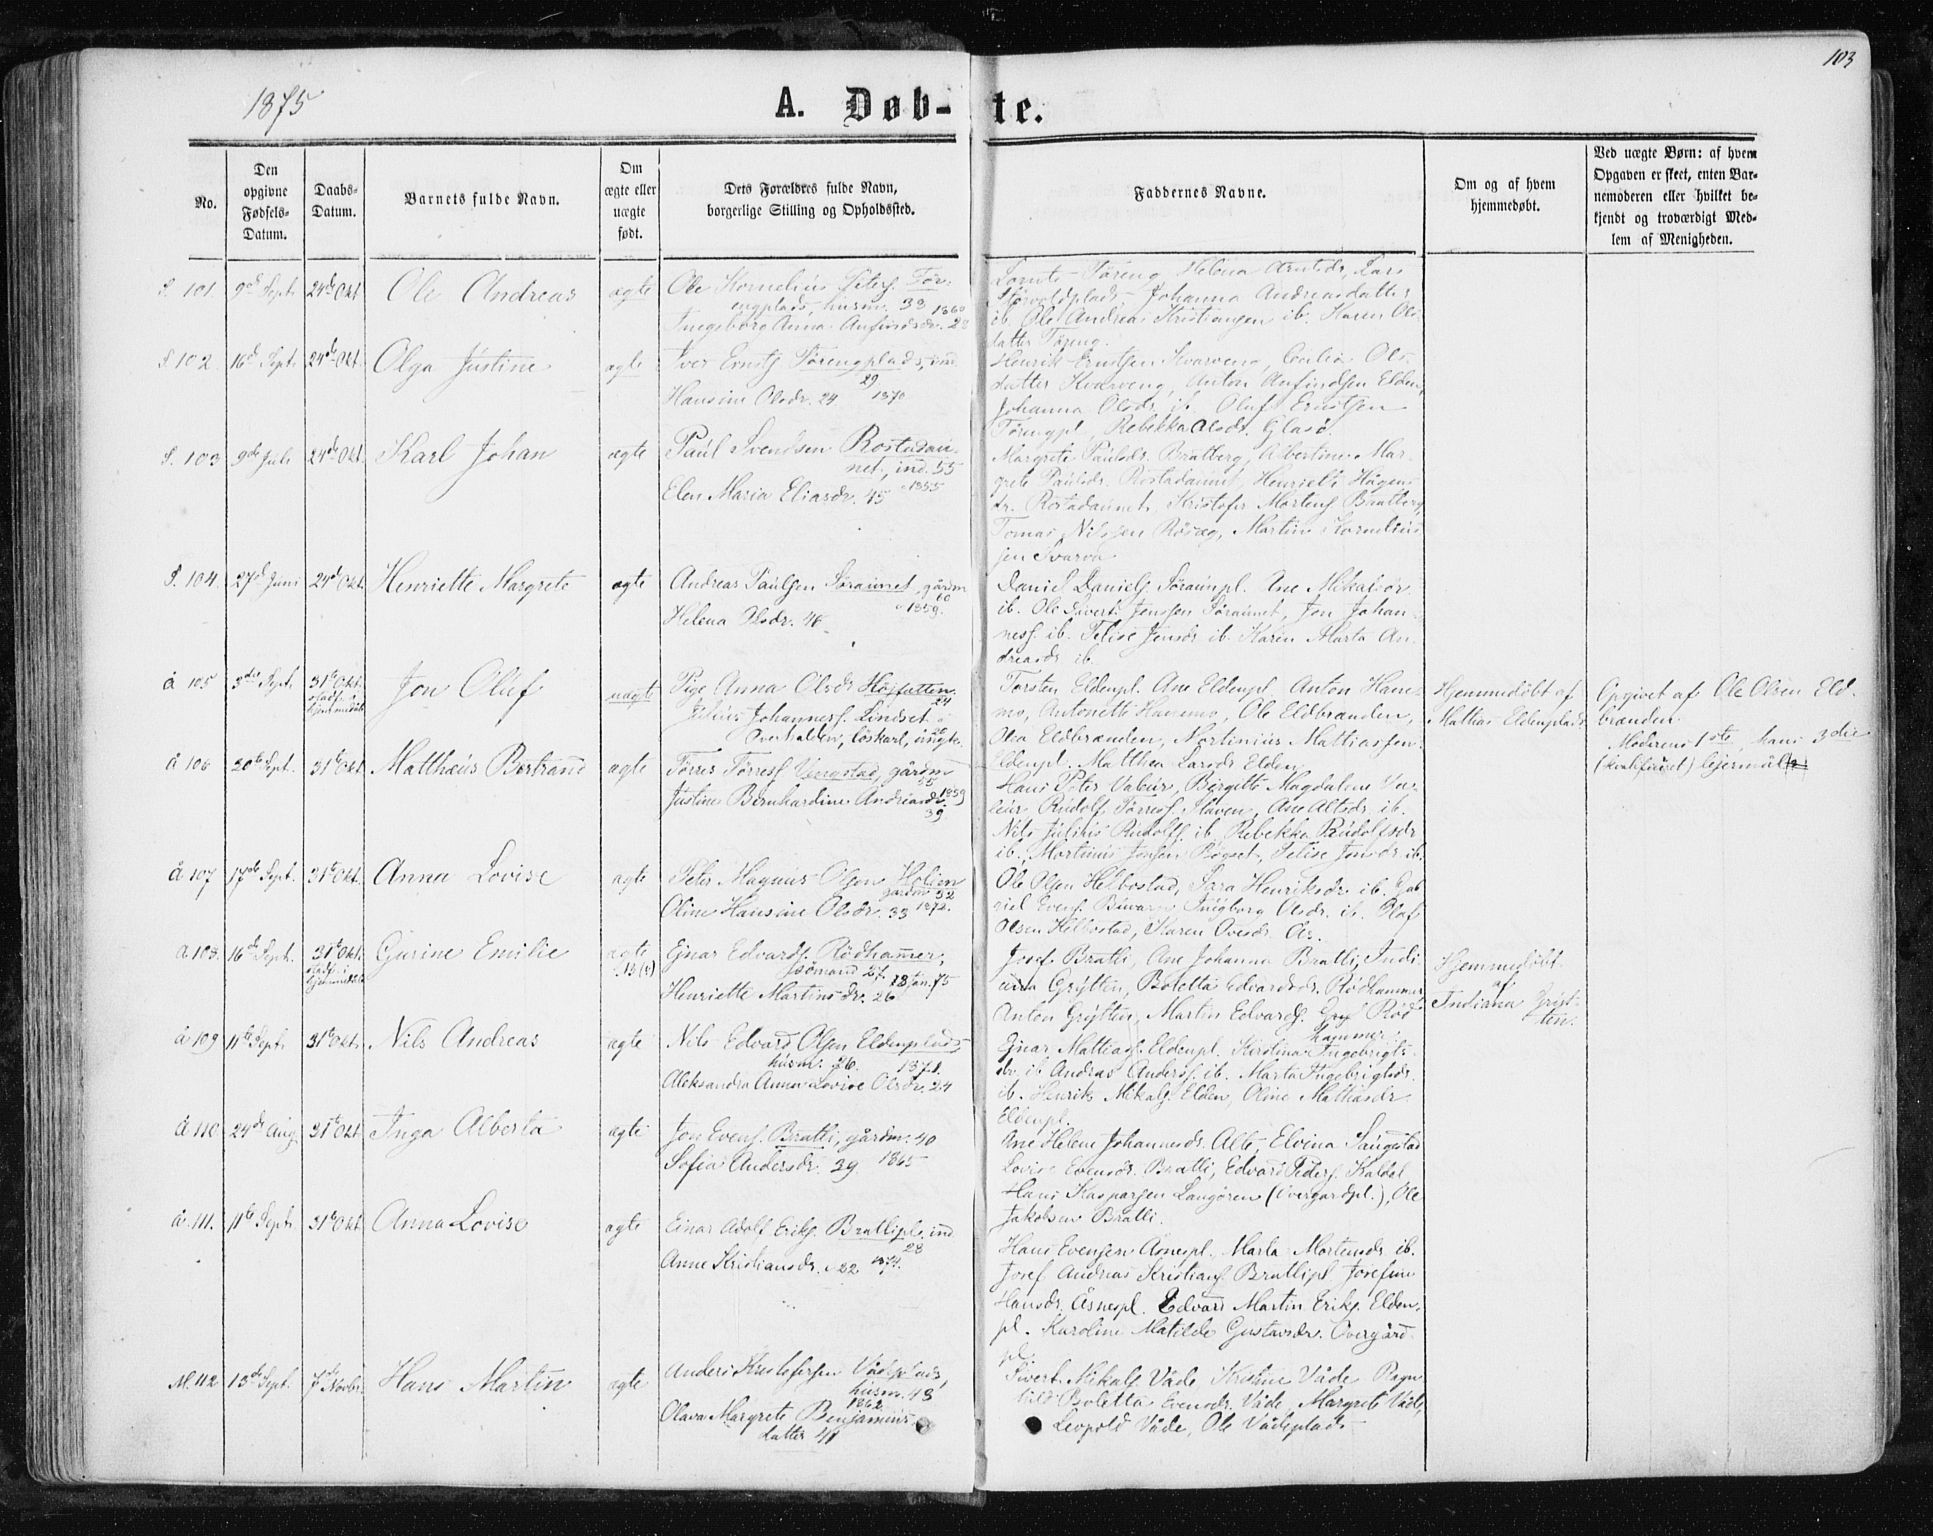 103
1875
A. Døb-te.
No.
Den opgivne Fødsels-Datum.
Daabs-Datum.
Barnets fulde Navn.
Om ægte eller uægte født.
Dets Forældres fulde Navn, borgerlige Stilling og Opholdssted.
Faddernes Navne.
Om og af hvem hjemmedøbt.
Ved uægte Børn: af hvem
Opgaven er skeet, enten Bar-
nemoderen eller hvilket be-
kjendt og troværdigt Med-
lem af Menigheden.
S. 101. 9de Sept. 24de Okt Ole Andreas ægte
Ole Kornelius Peters. Tør-
engplads, husm. 33 1860
Ingeborg Anna Anfindsdr. 28
Tøreng, Helena Arntsdr, Lars
Storvoldplads, Johanna Andreasdatter
ib. Ole Andreas Kristiansen ib. Karen Ols-
datter Tøreng.
S. 102. 16de Sept. 24de Okt. Olga Justine ægte
Iver Ernsts. Tørengplads, ind.
29
Hansine Olsdr. 24 1870
Henrik Erntsen Kvarveng, Cecilia Ols-
datter Kvarveng, Anton Anfindsen Elden,
Johanna Olsdr. ib. Oluf Erntsen
Tørengpl, Rebekka Olsdr. Glasø.
S. 103 9de Juli 24de Okt. Karl Johan ægte
Paul Svendsen Rostadau-
net, ind. 55
Elen Maria Eliasdr. 45 1855
Margrete Paulsdr. Bratberg, Albertine Mar-
grete Paulsdr. Rostadaunet, Henriette Hågens-
dr. Rostadaunet, Kristofer Martens. Bratberg,
Tomas Nilssen Røseg, Martin Kornelius-
sen Svarva
S. 104. 27de Juni 24de Okt. Henriette Margrete ægte
Andreas Paulsen Søraunet, gårdm
60
1859.
Helena Olsdr. 48
Daniel Daniels. Søraunpl. Ane Mikalsdr.
ib. Ole Sivert Jonssen Søraunet, Jon Johan-
ness. ib. Felise Jonsdr ib. Karen Marta An-
dreasdr ib.
å 105 3die Sept. 31te Okt. Jon Oluf uægte
stadf. i
hjemmedåb
Pige Anna Olsdr Høifutten
24
Julius Johanness. Lindset i
Overhalden, løskarl, ungk.
Torsten Eldenpl. Ane Eldenpl. Anton Ham-
mo, Antonette Hammo, Ole Eldbrænden,
Olea Eldbrænden, Mortinius Mattiassen
Eldenpl. Matthea Larsdr Elden
Hjemmedøbt af
Mattias Eldenplads
Opgivet af Ole Olsen Eld-
brænden.
Moderens 1ste, hans 3die
(konfiseret) lejermål
å 106 20de Sept. 31te Okt. Matthæus Bertrand ægte
Tørres Tørress. Vengstad, gårdm
55
Justine Bernhardine Andreasdr. 1859
39
Hans Peter Vabeur, Birgitte Magdalene Va-
beur, Rudolf Tørress. Staven, Ane Altsdr. ib.
Nils Julius Rudolfs. ib. Rebekka Rudolfsdr
ib. Martinus Jonsen Bøgset, Felise Jonsdr ib.
å 107 17de Sept. 31te Okt. Anna Lovise ægte
Peter Magnus Olsen Holien
gårdm 32
Oline Hansine Olsdr. 33 1872.
Ole Olsen Helbostad, Sara Henriksdr. ib. Gab-
riel Evens. Buvarp, Ingborg Olsdr. ib. Olaf
Olsen Helbostad, Karen Ovesdr. Ås.
å 108. 16de Sept. 31te Okt. Gurine Emilie ægte
stadf. i
hjemmedåb
Ejnar Edvards. Rødhammer,
sjømand 27. 13 jan. 75
Henriette Martinsdr. 26
Josef Bratli, Ane Johanna Bratli, Indi-
ana Grytten, Boletta Edvardsdr. Rødhammer,
Anton Grytten, Martin Edvards. Rød-
hammer
Hjemmedøbt
af
Indiana Gryt-
ten.
å 109 11te Sept. 31te Okt. Nils Andreas ægte
Nils Edvard Olsen Eldenplads,
husm. 26. 1871.
Aleksandra Anna Lovise Olsdr. 24
Ejnar Mattias. Eldenpl. Kirstina Ingebrigts-
dr. ib Andreas Anders. ib. Marta Ingebrigtsdr.
ib. Henrik Mikals. Elden, Oline Mathiasdr.
Eldenpl.
å 110 24de Aug. 31te Okt. Inga Alberta ægte
Jon Evens. Bratli, gårdm. 40
Sofia Andersdr. 39 1865
Ane Helene Johannesdr. Alte, Elvina Saugestad
Lovise Evensdr. Bratli, Edvard Peders. Kaldal
Hans Kaspersen Langøren (Overgårdpl.), Ole
Jakobsen Bratli.
å 111. 11te Sept. 31te Okt. Anna Lovise ægte
Einar Adolf Eriks. Bratlipl. ind
28
Anne Kristiansdr. 22 1874.
Hans Evensen Åsnespl. Marta Mortensdr. ib.
Josef Andreas Kristians. Bratlipl. Josefine
Hansdr. Åsnespl. Edvard Martin Eriks. Elden-
pl. Karoline Matilde Gustavsdr. Overgård-
pl.
M. 112 13de Sept. 7de Novbr. Hans Martin ægte
Anders Kristofersen Vådeplads,
husm. 43
1862
Olava Margrete Benjamins-
datter 41
Sivert Mikals. Våde Kristine Våde Ragn-
hild Boletta Evensdr. Våde, Margrete Våde,
Leopold Våde, Ole Vådeplads